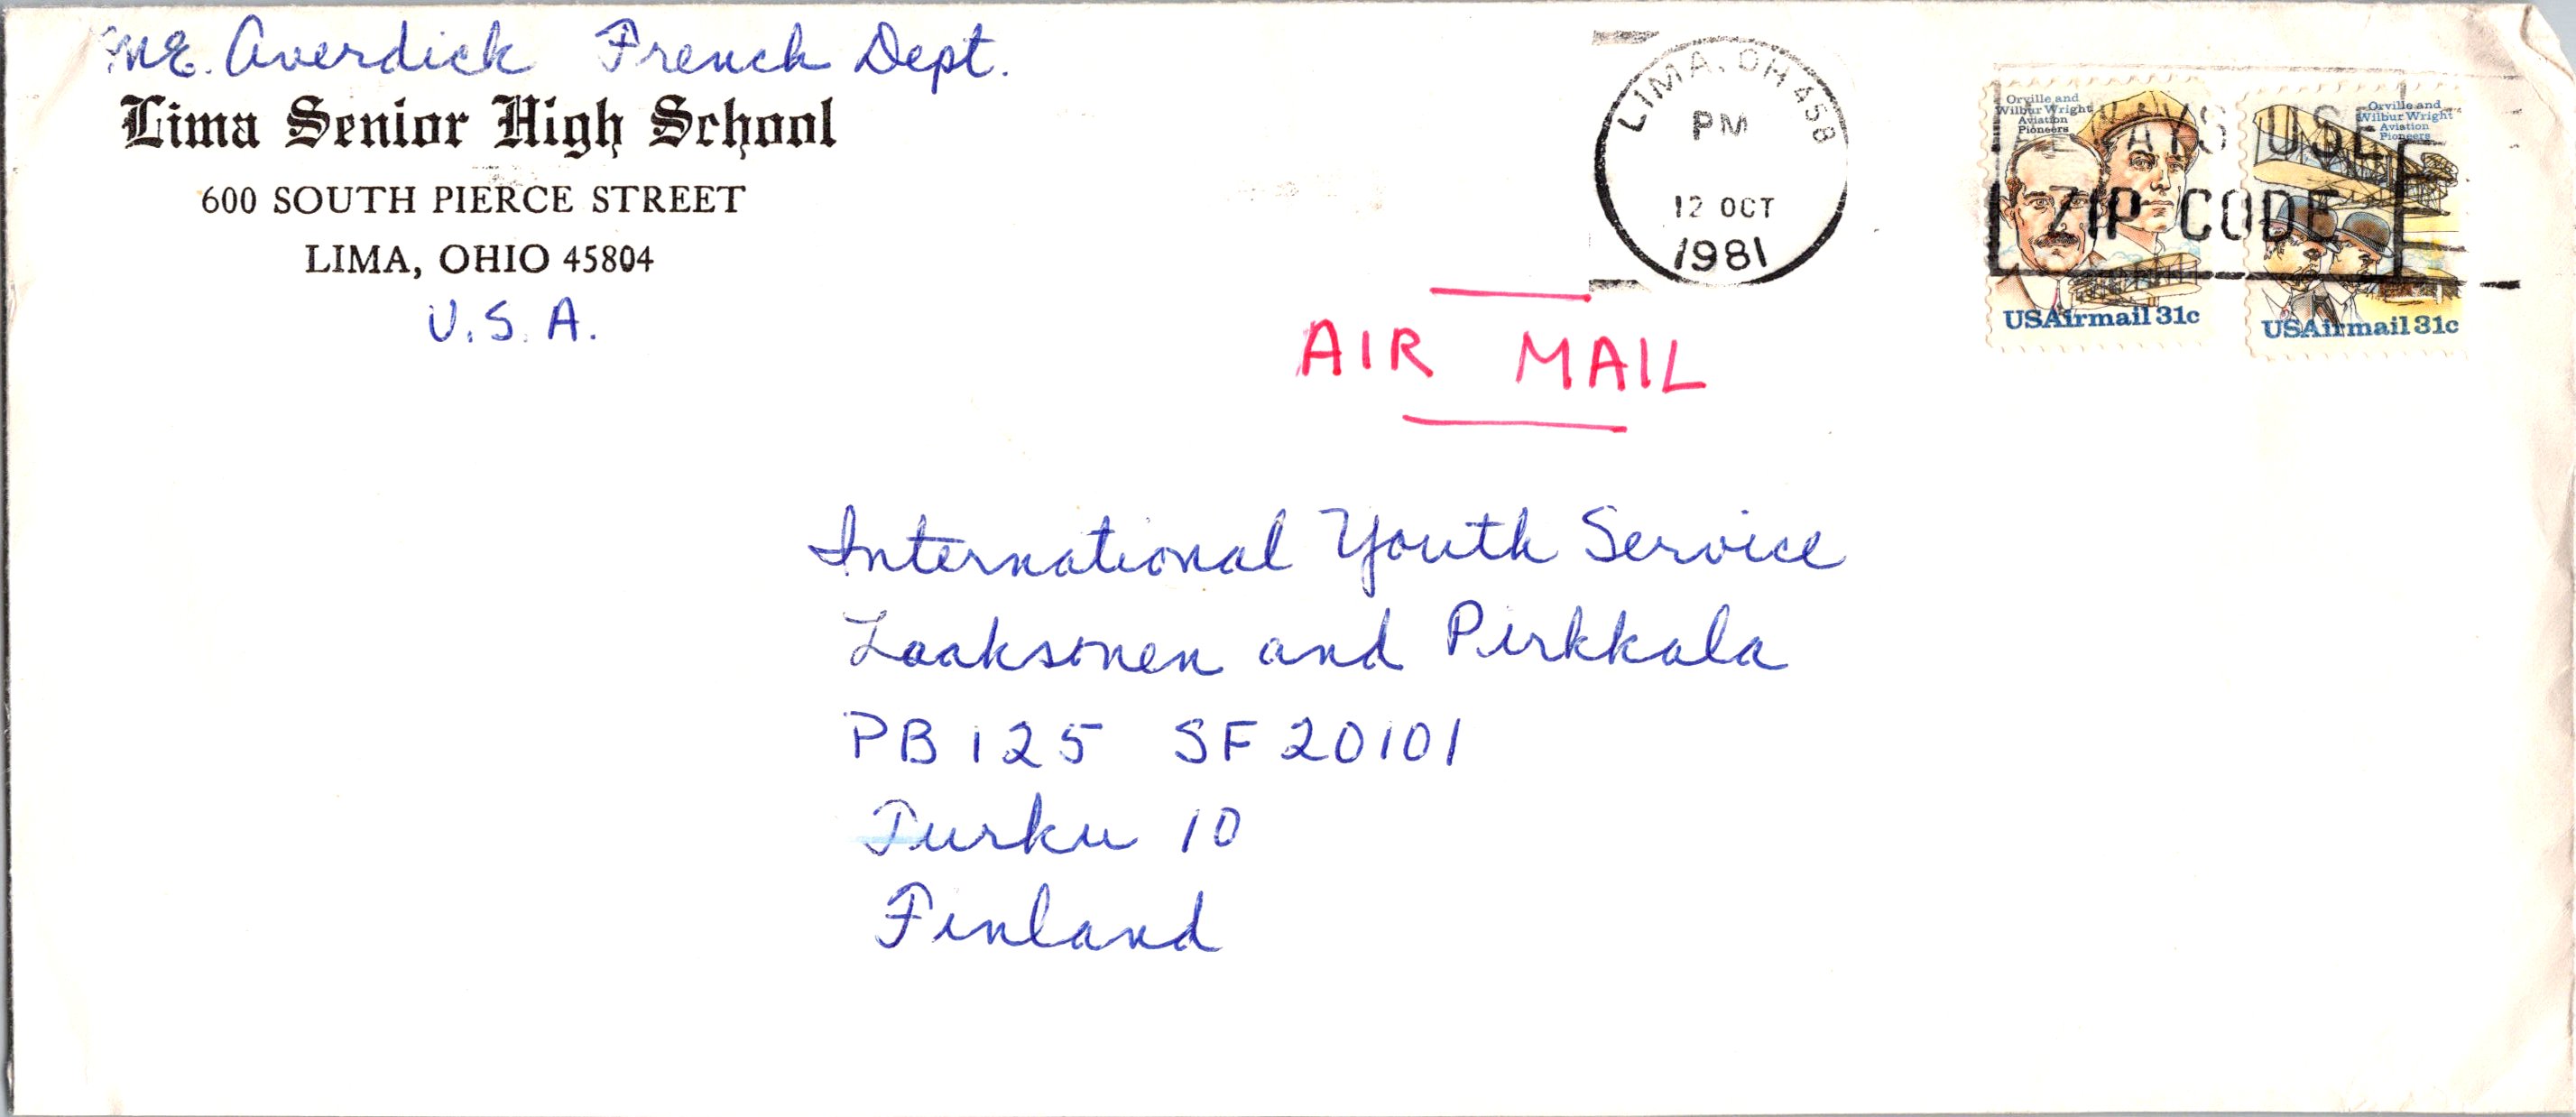 ME. Averdick French Dept.
Lima Senior High School
600 SOUTH PIERCE STREET
LIMA, OHIO 45804
U.S.A.
LIMA, OH 458
PM
12 OCT
1981
ALWAYS USE
ZIP CODE
Orville and
Wilbur Wright
Aviation
Pioneers
USAirmail 31c
Orville and
Wilbur Wright
Aviation
Pioneers
USAirmail 31c
AIR MAIL
International Youth Service
Laaksonen and Pirkkala
PB 125 SF 20101
Turku 10
Finland